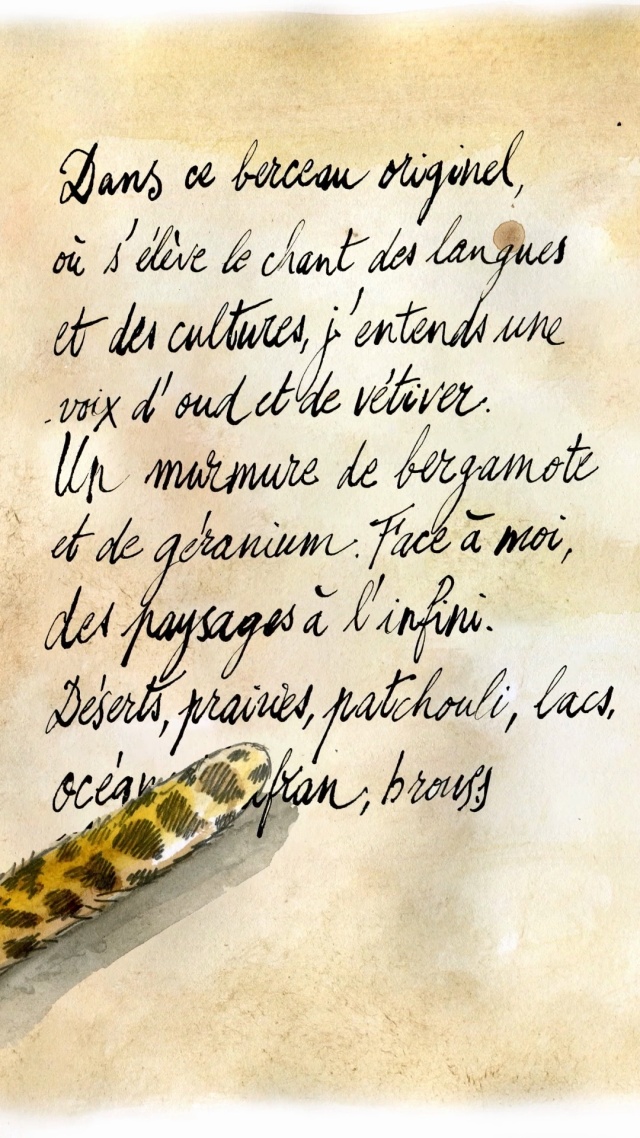 Dans ce berceau originel,
où s'élève le chant des langues
et des cultures, j'entends une
voix d'oud et de vétiver.
Un murmure de bergamote
et de géranium. Face à moi,
des paysages à l'infini.
Déserts, prairies, patchouli, lacs,
brouss